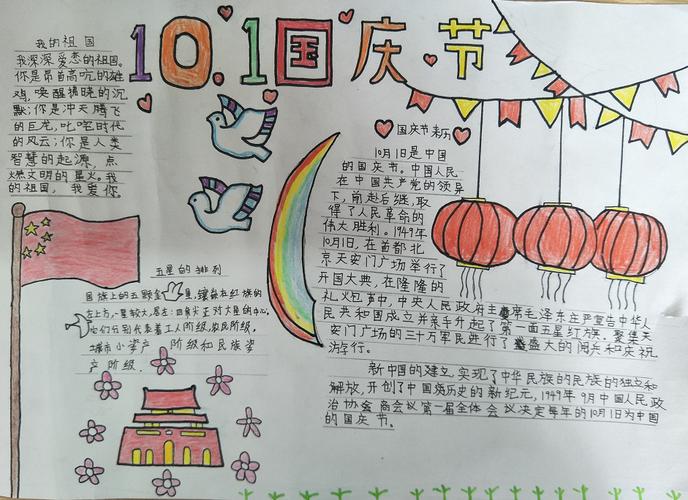 10.1国庆节
我的祖国
我深深爱恋的祖国。
你是昂首高吭的雄
鸡,唤醒拂晓的沉
默;你是冲天腾飞
的巨龙,叱咤时代
的风云;你是人类
智慧的起源,点
燃文明的星火。我
的祖国,我爱你。
五星的排列
国旗上的五颗金星,镶嵌在红旗的
左上方,一星较大,居左;四
正对大星的中心,
它们分别代表着工人阶级,农民阶级,
城市小资产阶级和民族资
产阶级.
国庆节来历
10月1日是中国
的国庆节。中国人民
在中国共产党的领导
下,前赴后继,取
得了人民革命的
伟大胜利。1949年
10月1日,在首都北
京天安门广场举行了
开国大典,在隆隆的
礼火包声中,中央人民政府主席毛泽东庄严宣告中华人
民共和国成立并亲手升起了第一面五星红旗。聚集天
安门广场的三十万军民进行了盛大的阅兵和庆祝
游行。
新中国的建立,实现了中华民族的民族的独立和
解放,开创了中国历史的新纪元,1949年9月中国人民政
治协会商会议第一届全体会议决定每年的10月1日为中国
的国庆节。